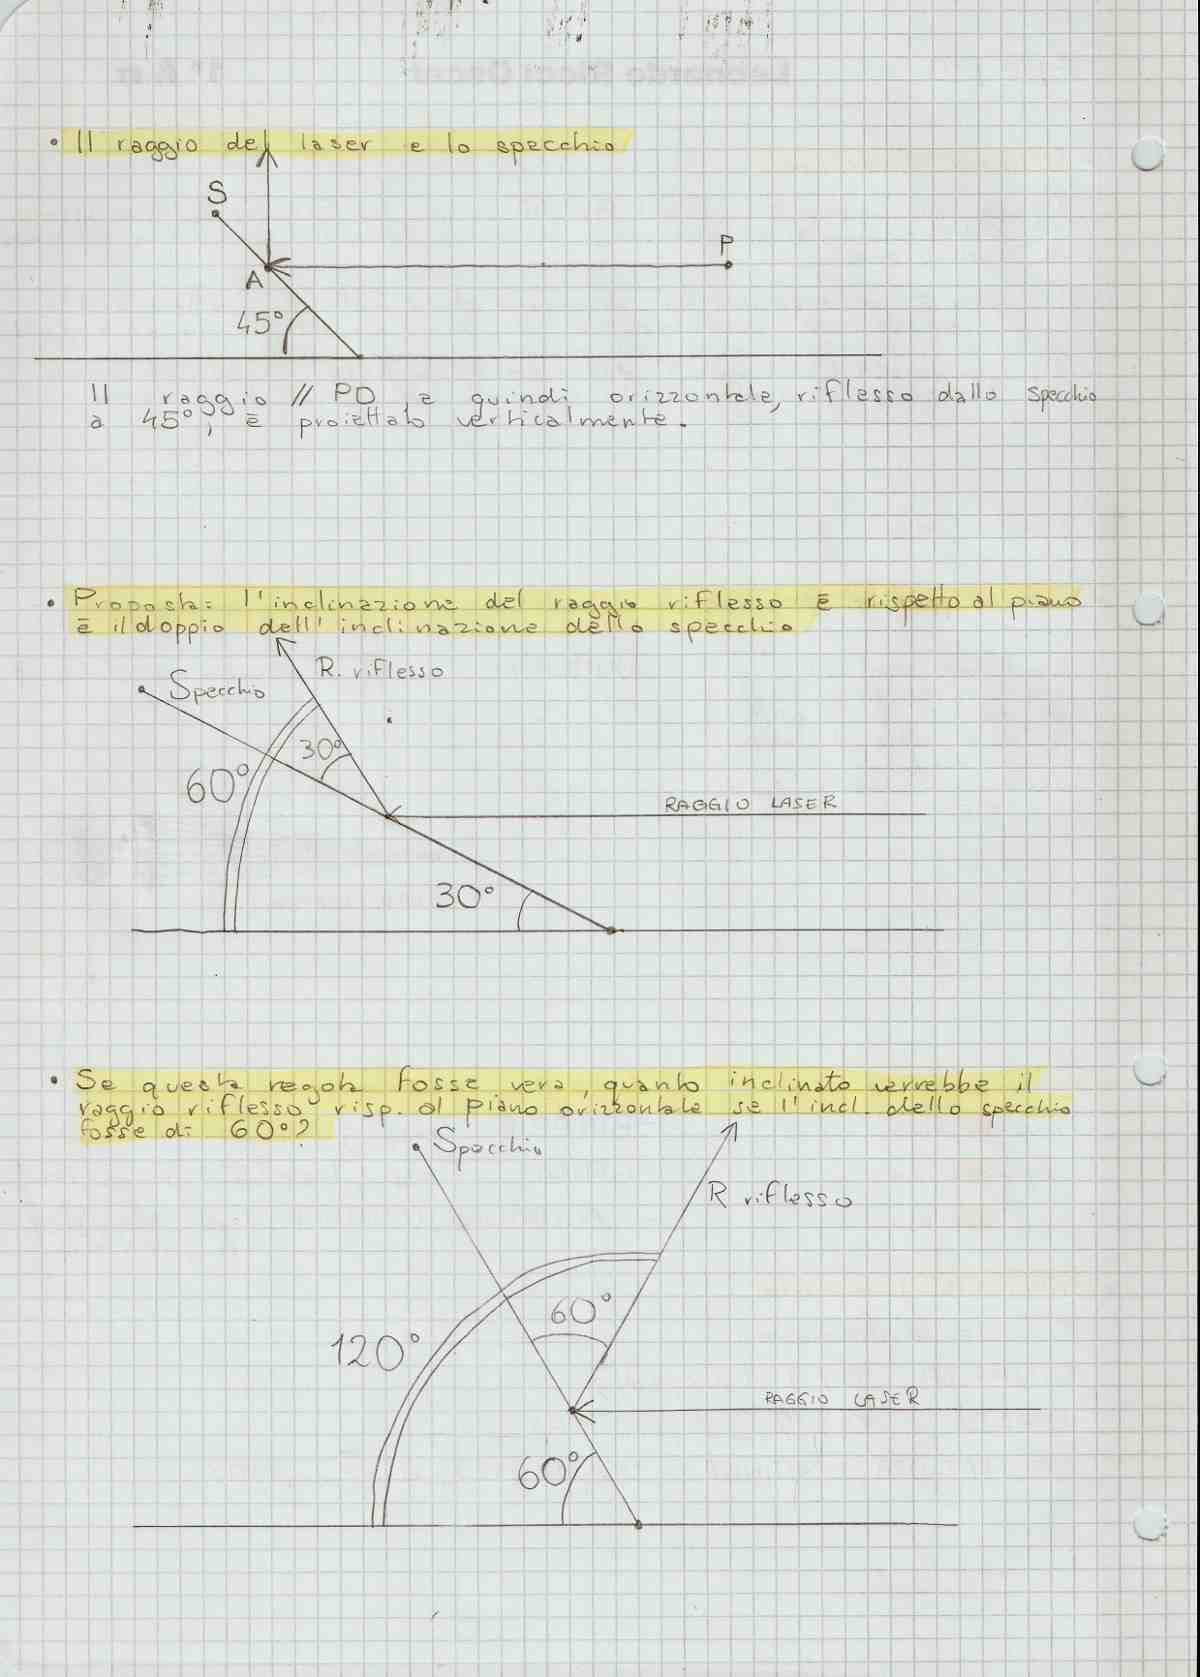 • Il raggio del laser e lo specchio
S
P
A
45°
Il raggio // PO, e quindi orizzontale, riflesso dallo specchio
a 45°, è proiettato verticalmente.
• Proposta: l'inclinazione del raggio riflesso è rispetto al piano
è il doppio dell'inclinazione dello specchio
R. riflesso
Specchio
30°
60°
RAGGIO LASER
30°
• Se questa regola fosse vera, quanto inclinato verrebbe il
raggio riflesso risp. al piano orizzontale se l'incl. dello specchio
fosse di 60°?
Specchio
R riflesso
60°
120°
RAGGIO LASER
60°